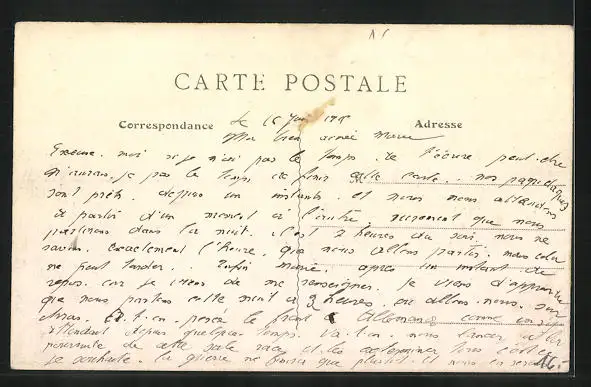 CARTE POSTALE
Correspondance
Adresse
le 15 Juin 1915
Ma bien aimée Marie
Excuse-moi si je n'ai pas le temps de t'écrire peut-être
n'aurai-je pas le temps de finir cette carte. nos paquetages
sont prêts. depuis un instant. et nous nous attendons
à partir d'un moment à l'autre, surement que nous
partirons dans la nuit. il est 2 heures du soir, nous ne
savons exactement l'heure que nous allons partir, mais cela
ne peut tarder. Enfin Marie, après un instant de
repos. car je viens de me renseigner. je viens d'apprendre
que nous partons cette nuit à 2 heures, où allons-nous. sur
Arras. A-t-on percé le front Allemand comme on
s'attendait depuis quelque temps. Va-t-on nous lancer à la
poursuite de cette sale race et les exterminer tous
je souhaite. la guerre ne finira que plus tôt et nous en